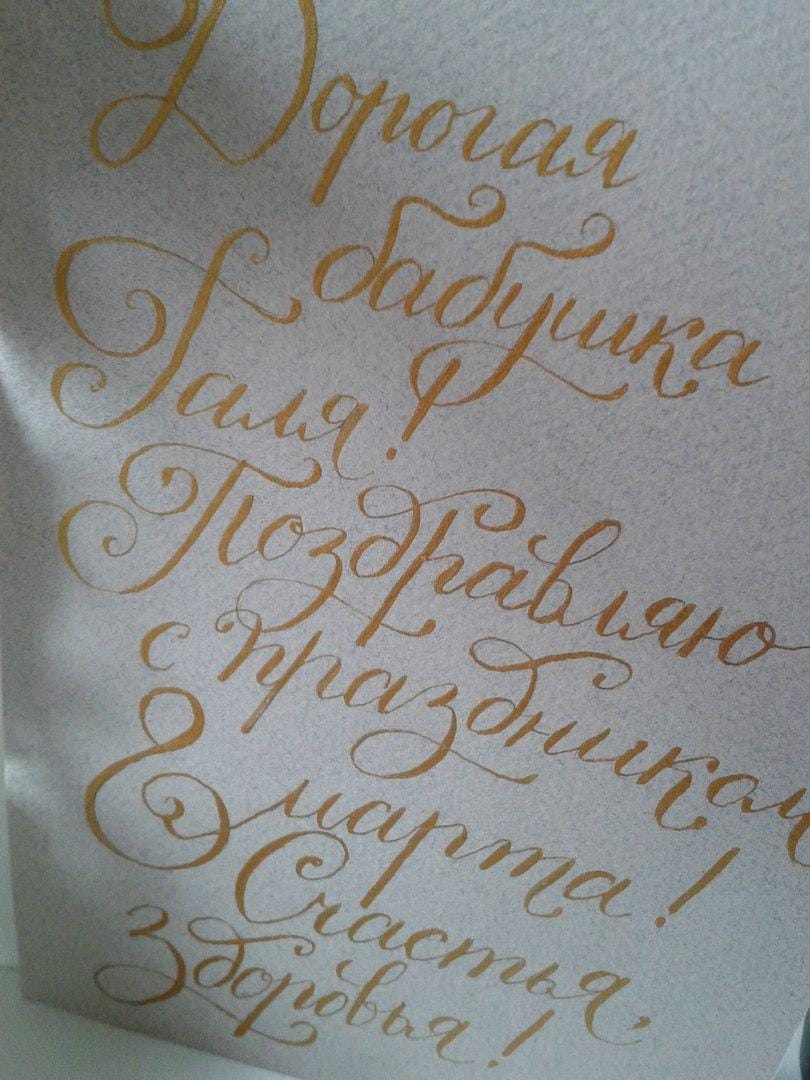 Дорогая
бабушка
Галя!
Поздравляю
с праздником
8 марта!
Счастья,
здоровья!